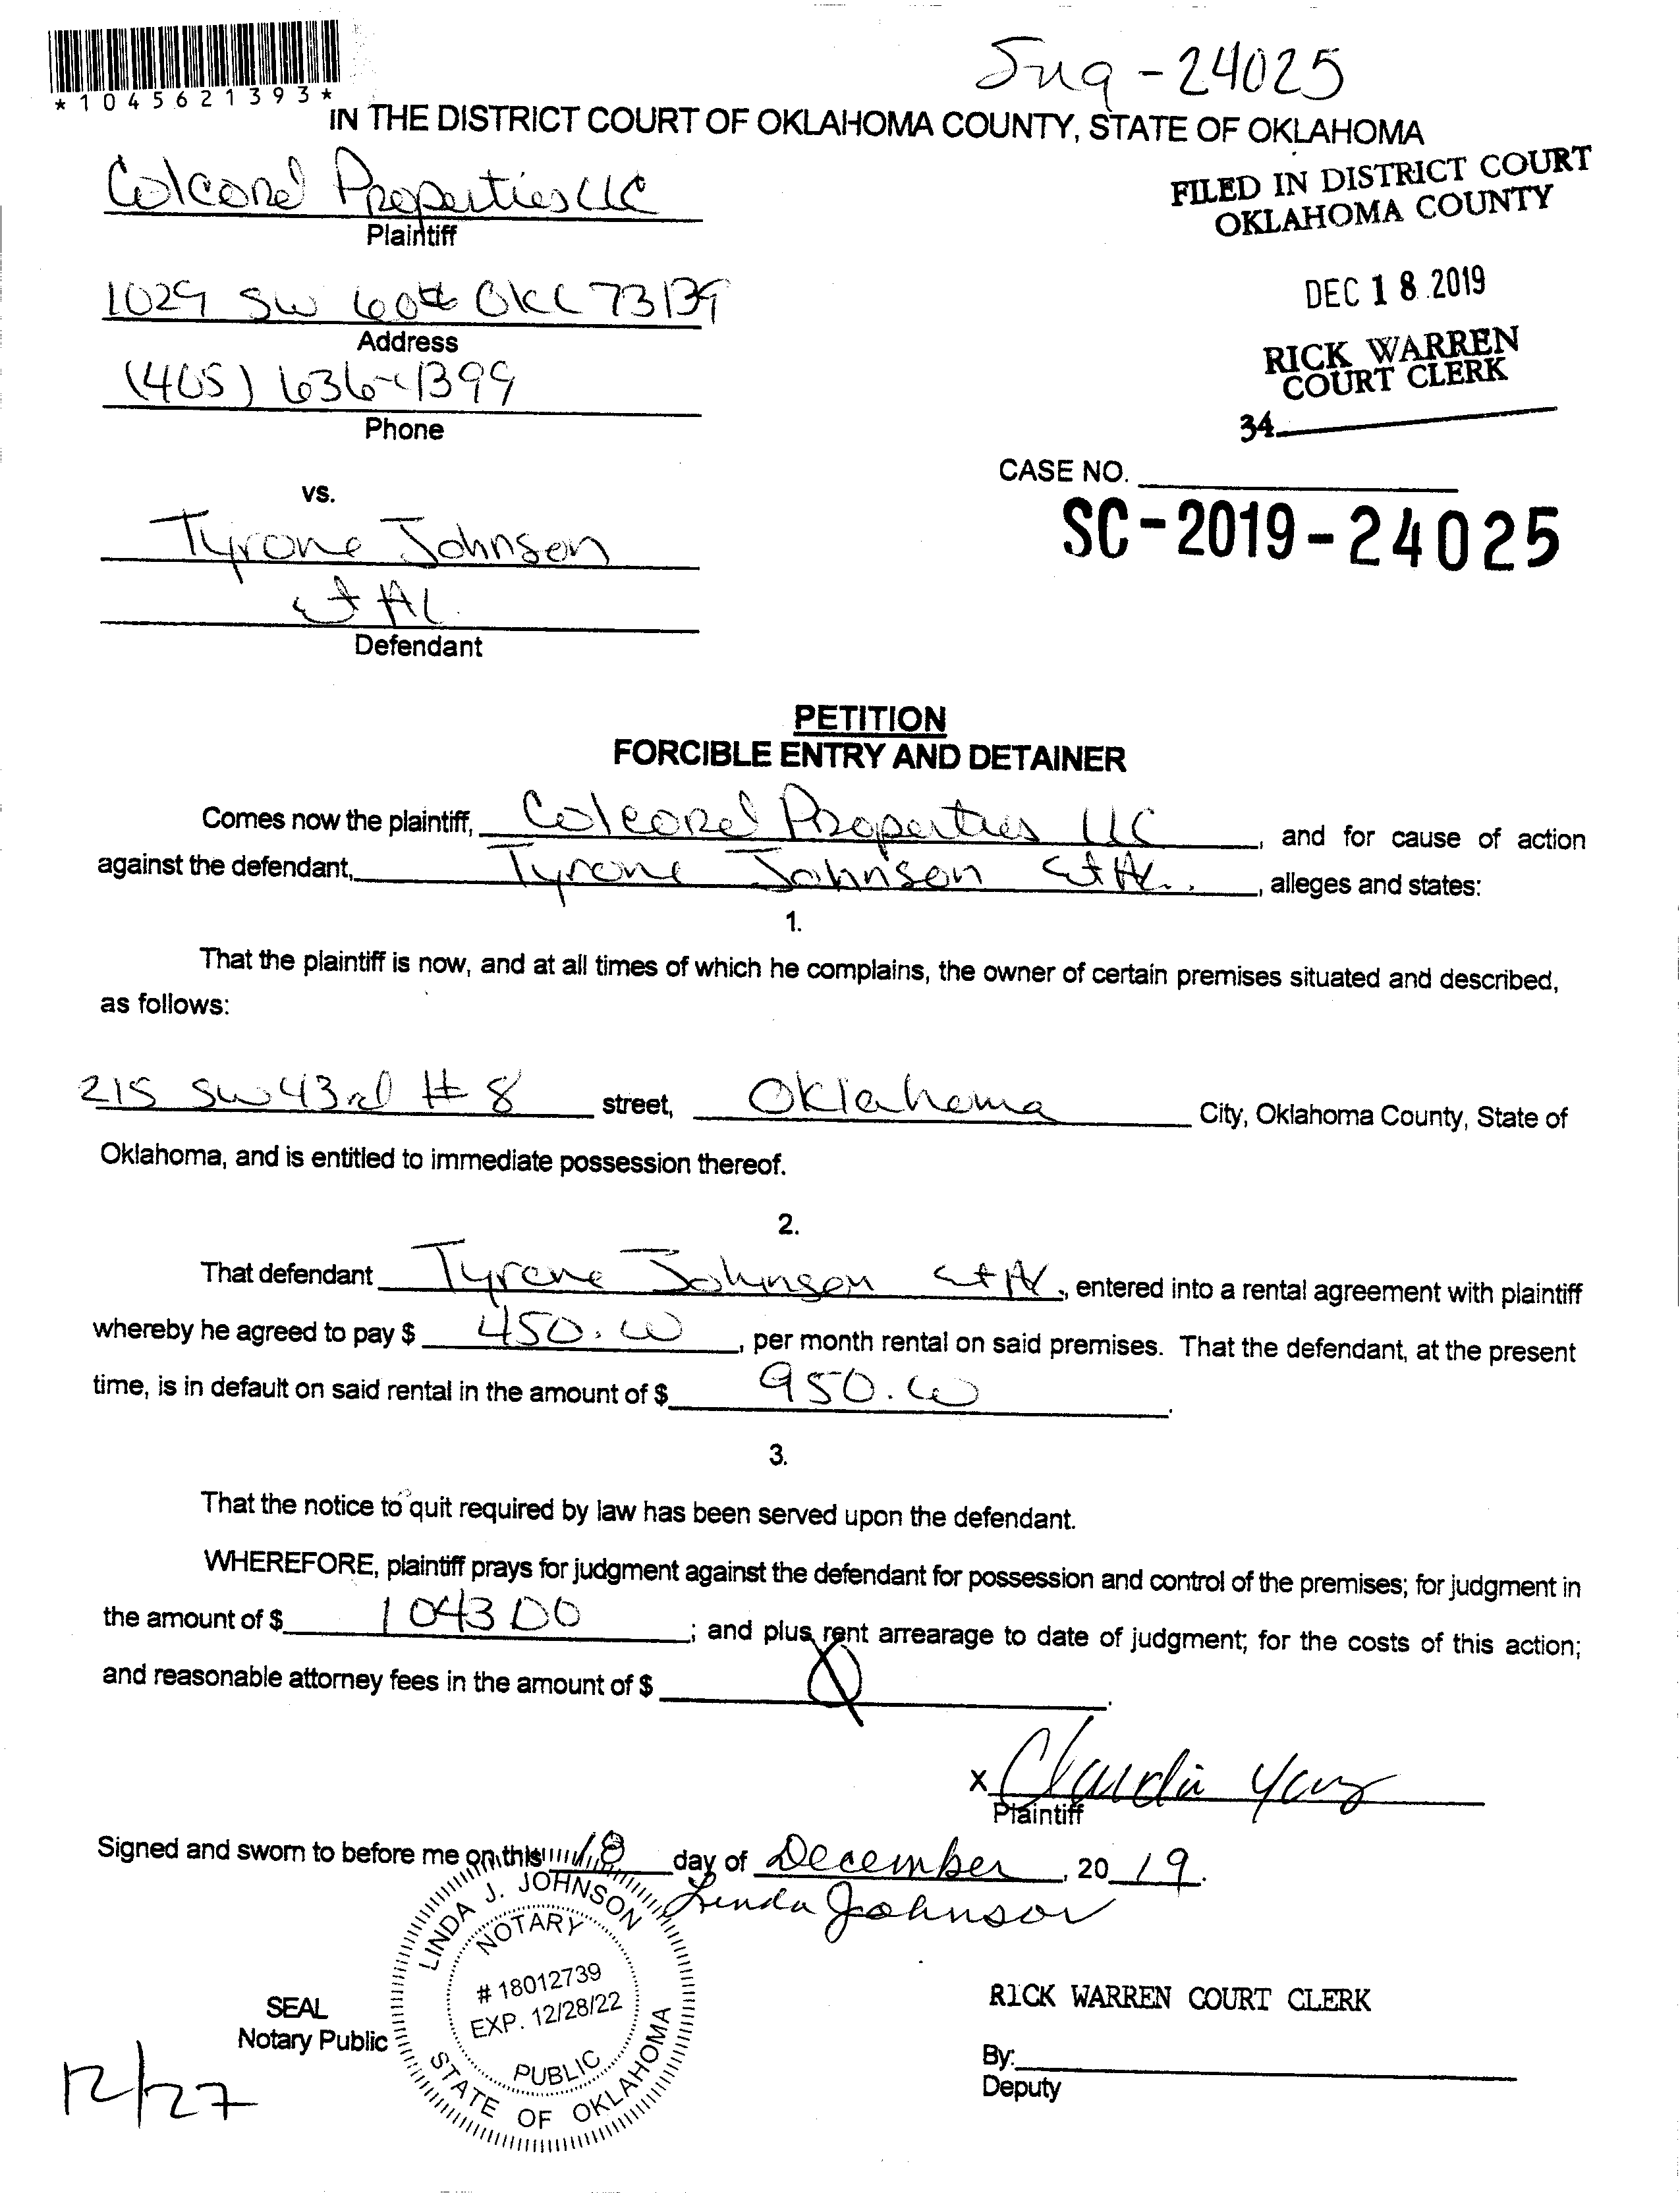 *1045621393*
Sng-24025
IN THE DISTRICT COURT OF OKLAHOMA COUNTY, STATE OF OKLAHOMA
Colcord Properties LLC
Plaintiff
FILED IN DISTRICT COURT
OKLAHOMA COUNTY
1029 SW 60th OKC 73139
Address
DEC 18 2019
(405) 636-1399
Phone
RICK WARREN
COURT CLERK
34
CASE NO.
SC-2019-24025
vs.
Tyrone Johnson
et AL.
Defendant
PETITION
FORCIBLE ENTRY AND DETAINER
Comes now the plaintiff, Colcord Properties LLC, and for cause of action
against the defendant, Tyrone Johnson et AL., alleges and states:
1.
That the plaintiff is now, and at all times of which he complains, the owner of certain premises situated and described,
as follows:
215 SW 43rd # 8 street, Oklahoma City, Oklahoma County, State of
Oklahoma, and is entitled to immediate possession thereof.
2.
That defendant Tyrone Johnson et AL., entered into a rental agreement with plaintiff
whereby he agreed to pay $ 450.00, per month rental on said premises. That the defendant, at the present
time, is in default on said rental in the amount of $ 950.00.
3.
That the notice to quit required by law has been served upon the defendant.
WHEREFORE, plaintiff prays for judgment against the defendant for possession and control of the premises; for judgment in
the amount of $ 1043 00; and plus rent arrearage to date of judgment; for the costs of this action;
and reasonable attorney fees in the amount of $ 0.
x Claudia
Plaintiff
Signed and sworn to before me on this 18 day of December, 20 19.
Linda Johnson
LINDA J. JOHNSON
NOTARY
# 18012739
EXP. 12/28/22
PUBLIC
STATE OF OKLAHOMA
SEAL
Notary Public
RICK WARREN COURT CLERK
By:
Deputy
12/27